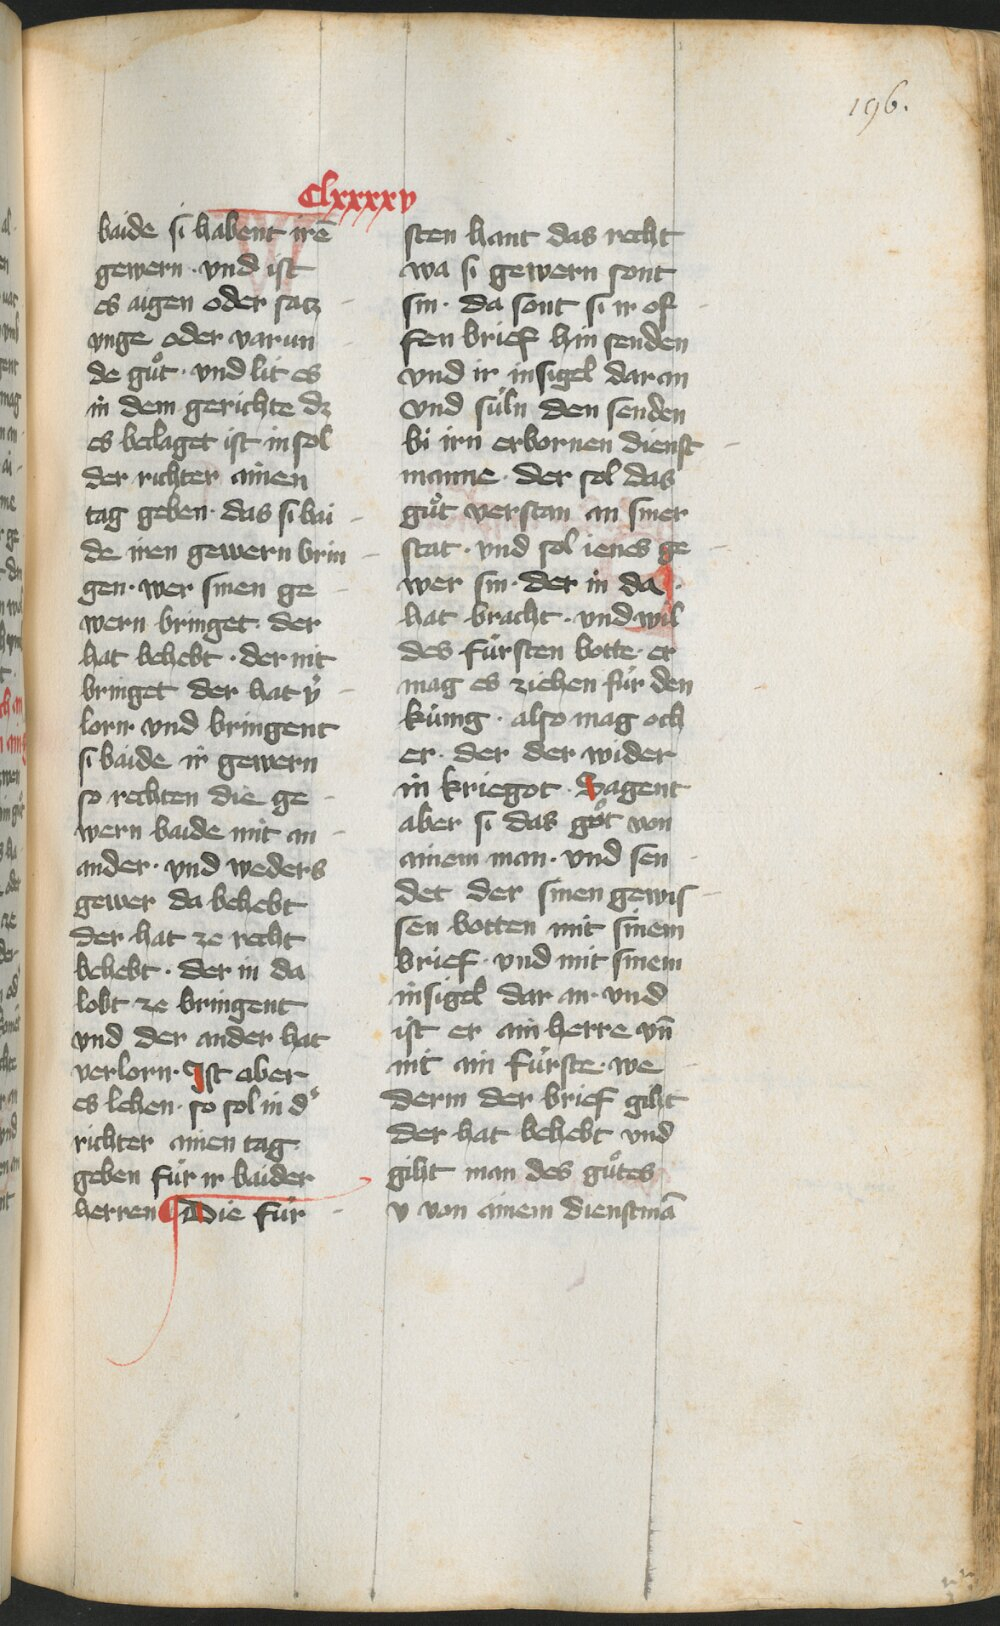 196.
Clxxxxv
baide si habent irē
gewern · vnd ist
es aigen oder satz
vnge oder varun
de gůt · vnd lit es
in dem gerichte dz
es beclaget ist in sol
der richter ainen
tag geben · das si bai
de iren gewern brin
gen · wer sinen ge
wern bringet · der
hat behebt · der nit
bringet der hat v̓
lorn · vnd bringent
si baide ir gewern
so rechten die ge
wern baide mit an
ander · vnd weders
gewer da behebt
der hat ze recht
behebt · der in da
lobt ze bringent
vnd der ander hat
verlorn · Ist aber
es lehen · so sol in d͛
richter ainen tag
geben für ir baider
herren ¶ Die für
sten hant das recht
wa si gewern sont
sin · da sont si ir of
fen brief hin senden
vnd ir insigel daran
vnd süln den senden
bi irn erbornen dienst
manne · der sol das
gůt verstan an siner
stat · vnd sol ienes ge
wer sin · der in da
hat bracht · vnd wil
des fürsten botte · er
mag es ziehen für den
küng · also mag och
er · der der wider
in kriegot · Sagent
aber si das gůt von
ainem man · vnd sen
det der sinen gewis
sen botten mit sinem
brief · vnd mit sinem
insigel dar an · vnd
ist er ain herre vn̄
nit ain fürste · we
derm der brief giht
der hat behebt vnd
giht man des gůtes
v von ainem dienstmā